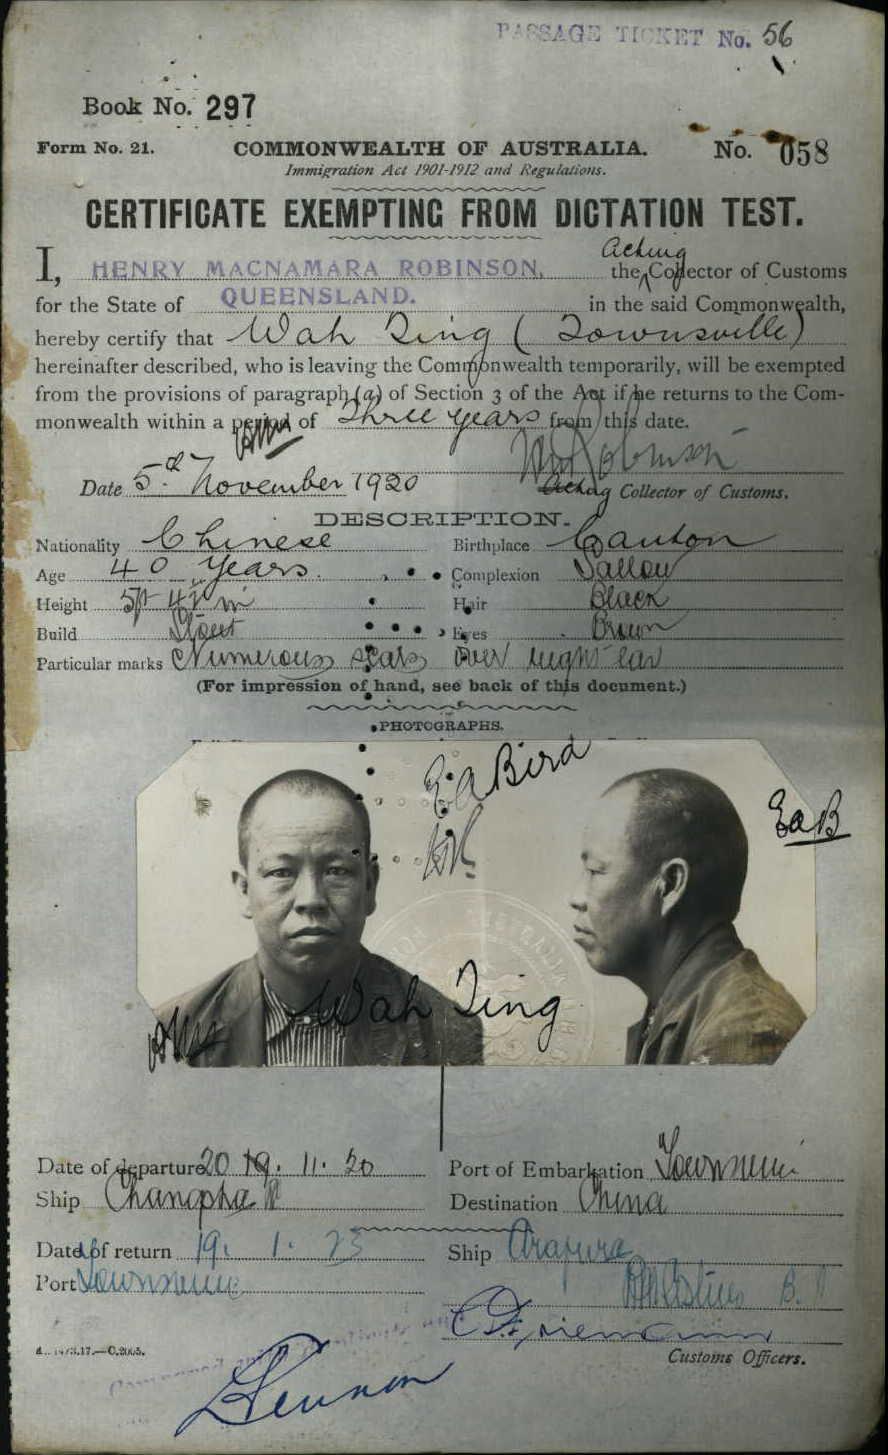 PASSAGE TICKET No. 56
Book No. 297
Form No. 21. COMMONWEALTH OF AUSTRALIA. No. 058
Immigration Act 1901-1912 and Regulations.
CERTIFICATE EXEMPTING FROM DICTATION TEST.
Acting
I, HENRY MACNAMARA ROBINSON, the Collector of Customs
for the State of QUEENSLAND. in the said Commonwealth,
hereby certify that Wah Ting (Townsville)
hereinafter described, who is leaving the Commonwealth temporarily, will be exempted
from the provisions of paragraph (a) of Section 3 of the Act if he returns to the Com-
monwealth within a period of Three years from this date.
Robinson
Date 5th November 1920 Acting Collector of Customs.
DESCRIPTION.
Nationality Chinese Birthplace Canton
Age 40 years. Complexion Sallow
Height 5ft 4½ in Hair Black
Build Stout Eyes Brown
Particular marks Numerous scars over right ear
(For impression of hand, see back of this document.)
PHOTOGRAPHS.
EaBird
EaB
Wah Ting
Date of departure 20 19. 11. 20 Port of Embarkation Townsville
Ship Changsha Destination China
Date of return 19. 1. 23 Ship Arafura
Port Townsville
Customs Officers.